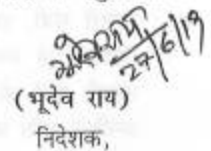 27/6/19
(भूदेव राय)
निदेशक,